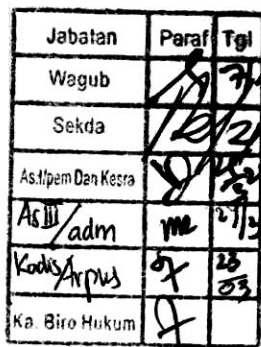 Jabatan Paraf Tgl
Wagub
Sekda
As.I/pem Dan Kesra
As III/adm 21/3
Kadis/Arpus 23/03
Ka. Biro Hukum